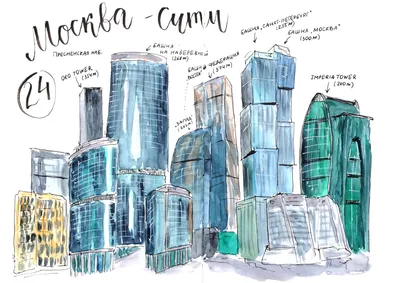 Москва - Сити
ПРЕСНЕНСКАЯ НАБ.
24
ОКО TOWER
(354м)
БАШНЯ
НА НАБЕРЕЖНОЙ
(268м)
БАШНЯ ФЕДЕРАЦИЯ
"ВОСТОК"
(374м)
"ЗАПАД"
БАШНЯ „САНКТ-ПЕТЕРБУРГ"
БАШНЯ „МОСКВА"
(300м)
IMPERIA TOWER